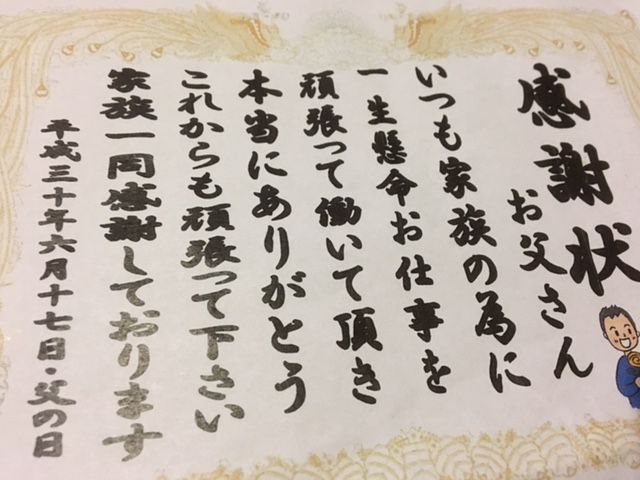 感謝状
お父さん
いつも家族の為に
一生懸命お仕事を
頑張って働いて頂き
本当にありがとう
これからも頑張って下さい
家族一同感謝しております
平成三十年六月十七日・父の日